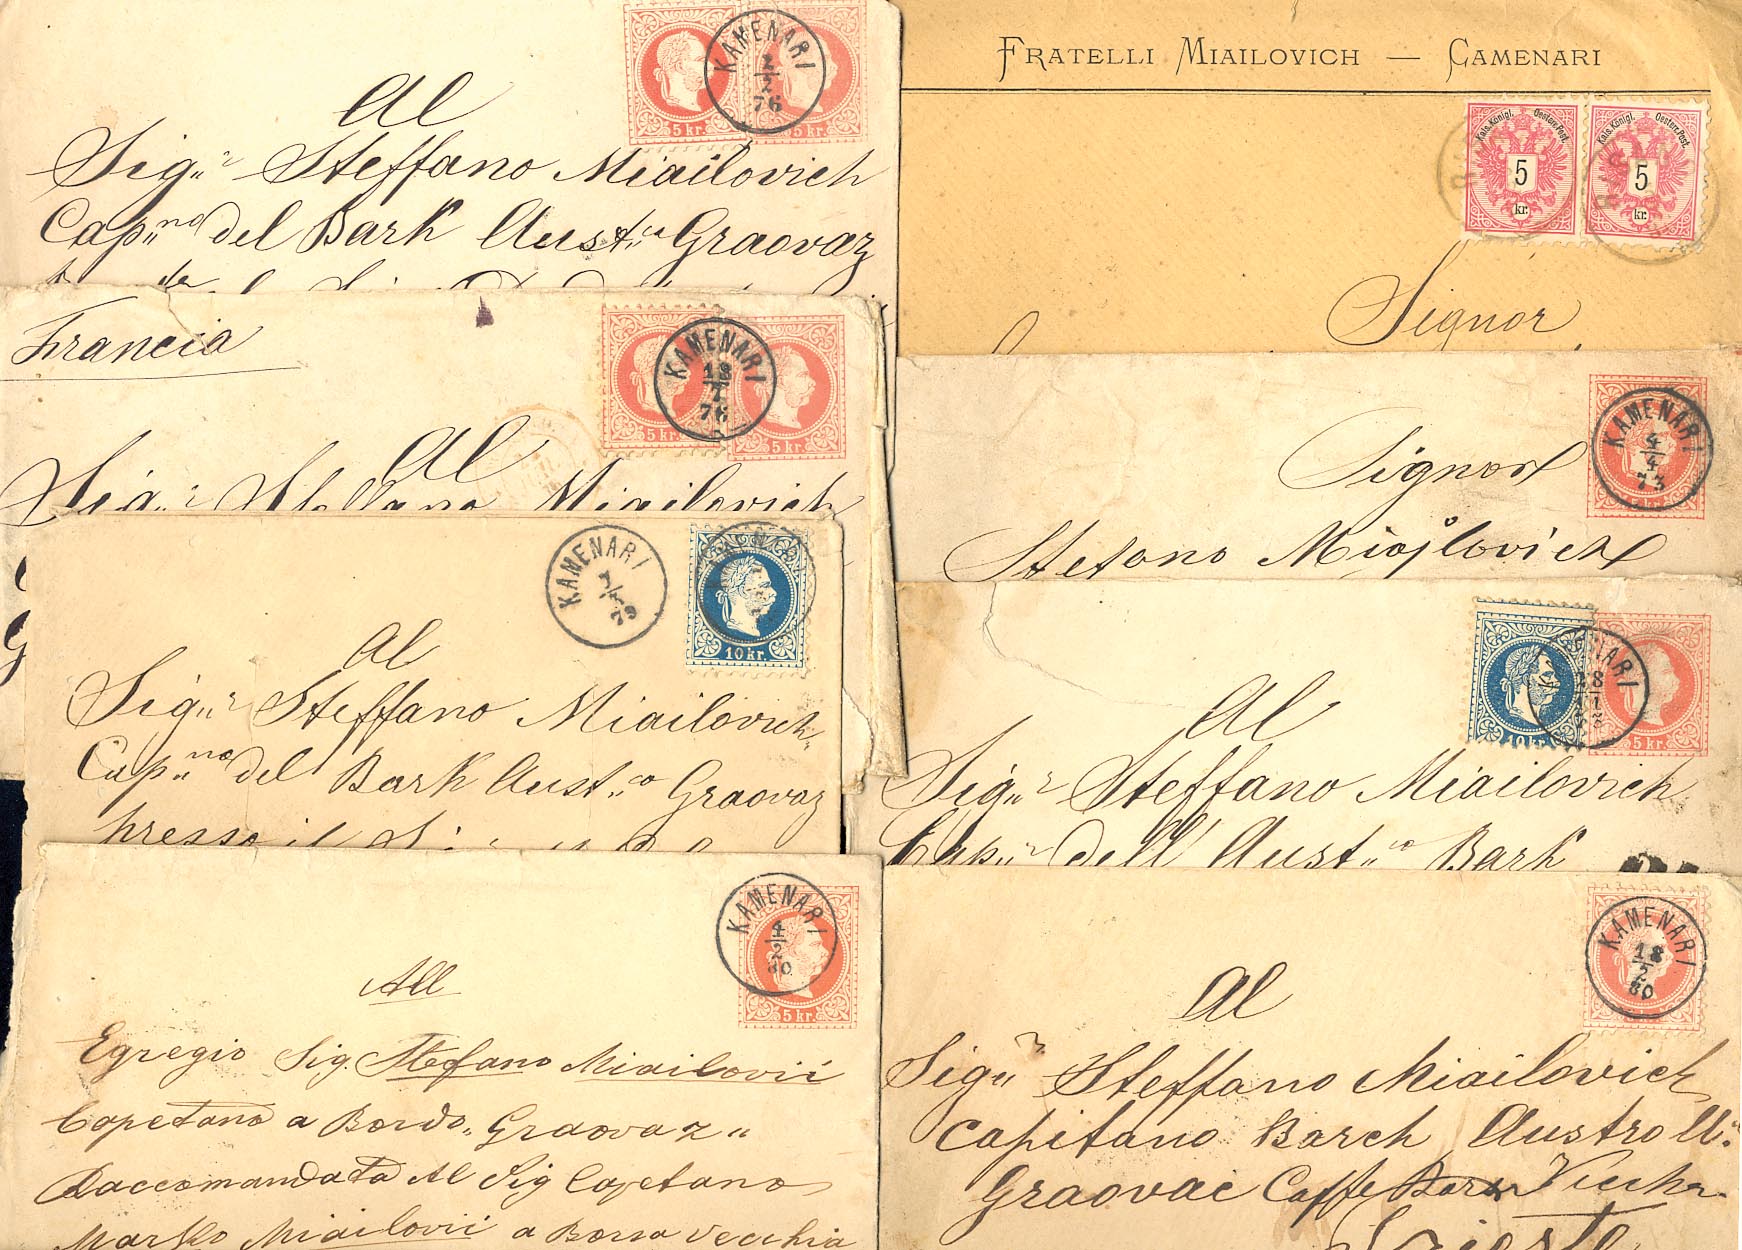 KAMENARI
2
2
76
5 kr.
5 kr.
Al
Sig.r Steffano Miailovich
Cap.no del Bark Aust.co Graovaz
Francia
KAMENARI
18
76
5 kr.
5 kr.
Al
Sig.r Steffano Miailovich
KAMENARI
79
10 kr.
Al
Sig.r Steffano Miailovich
Cap.no del Bark Aust.co Graovaz
presso il
KAMENARI
4
2
80
5 kr.
All
Egregio Sig. Stefano Miailovii
Capetano a Bordo „Graovaz„
Raccomandata Al Sig Capetano
Marko Miailovii a Borsa Vecchia
FRATELLI MIAILOVICH — CAMENARI
Kais. Königl. Oesterr. Post.
5
kr.
Kais. Königl. Oesterr. Post.
5
kr.
Signor
KAMENARI
4
4
73
5 kr.
Signor
Stefano Miajlovich
10 kr.
5 kr.
Al
Sig.r Steffano Miailovich
Cap.n dell' Aust.co Bark
KAMENARI
18
2
80
Al
Sig.r Steffano Miailovich
Capitano Barch Austro
Graovac Caffe Borsa Vecchia
Trieste